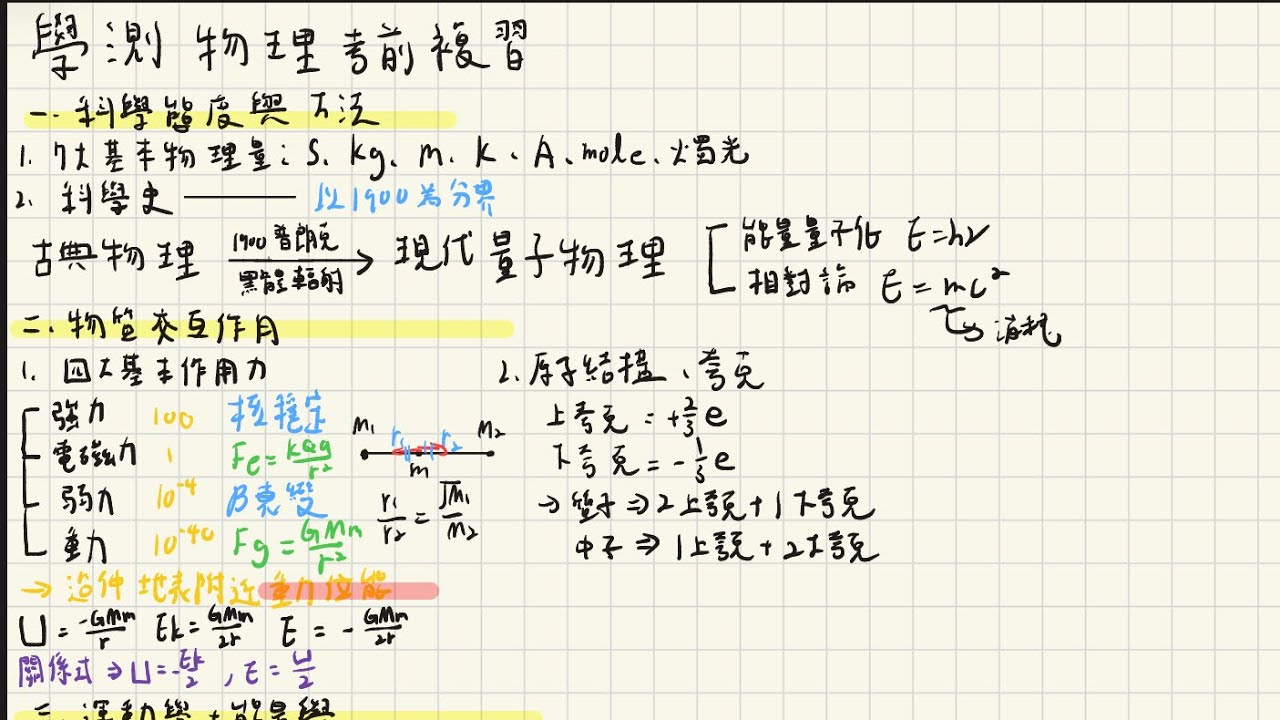 學測物理考前複習
一. 科學態度與方法
1. 7大基本物理量: S、kg、m、K、A、mole、燭光
2. 科學史 —— 以1900為分界
古典物理 1900普朗克 黑體輻射 → 現代量子物理
能量量子化 E=hν
相對論 E=mc²
↳消耗
二. 物質交互作用
1. 四大基本作用力
強力 100 核穩定
電磁力 1 Fe=kQq/r²
弱力 10⁻⁴ β衰變
重力 10⁻⁴⁰ Fg=GMm/r²
M₁ r₁ m r₂ M₂
r₁/r₂=√M₁/M₂
→ 地表附近重力位能
U=-GMm/r Ek=GMm/2r E=-GMm/2r
關係式⇒U=-Ek/2, E=U/2
2. 原子結構、夸克
上夸克=+2/3e
下夸克=-1/3e
→ 質子⇒2上夸克+1下夸克
中子⇒1上夸克+2下夸克
三. 運動學+能量學